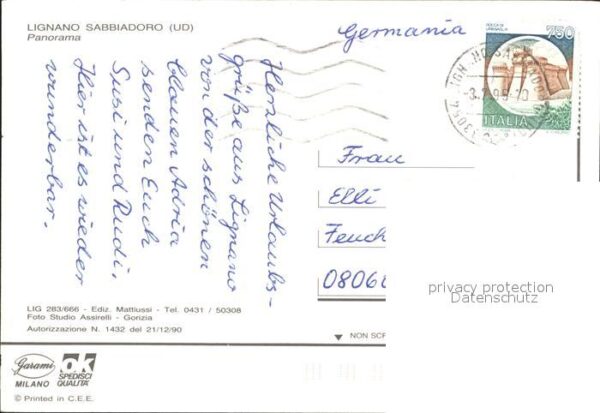 LIGNANO SABBIADORO (UD)
Panorama
Germania
750
ITALIA
Herzliche Urlaubs-
grüße aus Lignano
von der schönen
blauen Adria
senden Euch
Susi und Rudi,
Hier ist es wieder
wunderbar.
Frau
Elli
Feuch
0806
privacy protection
Datenschutz
LIG 283/666 - Ediz. Mattiussi - Tel. 0431 / 50308
Foto Studio Assirelli - Gorizia
Autorizzazione N. 1432 del 21/12/90
NON SCR
Garami
MILANO
ok
SPEDISCI
QUALITÀ
© Printed in C.E.E.